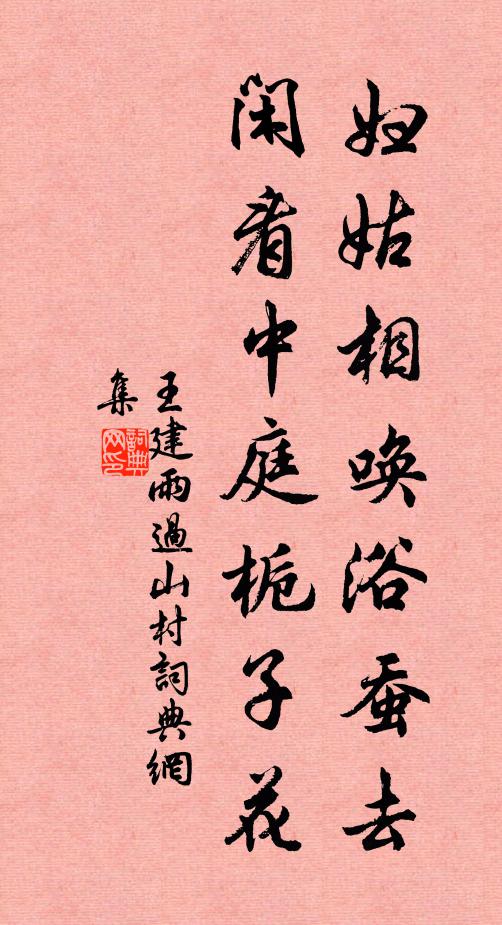 妇姑相唤浴蚕去
闲看中庭栀子花
王建雨過山村詞典網
集
詞典网印